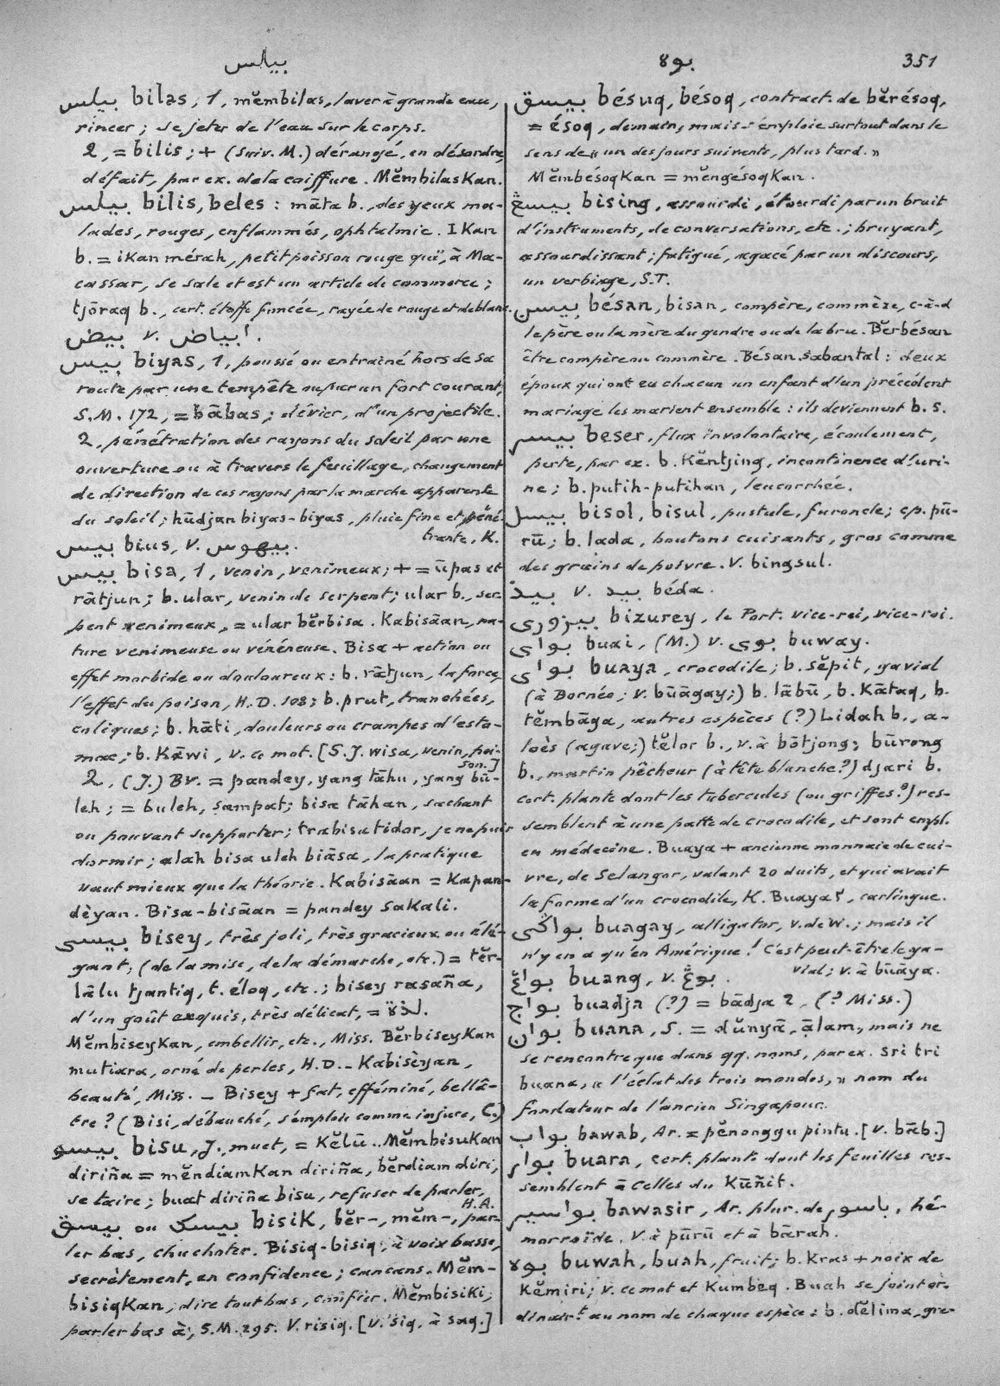 بيلس
بوه
351
بيلس bilas, 1, mĕmbilas, laver à grande eau,
rincer; se jeter de l'eau sur le corps.
2, = bilis; + (suiv. M.) dérangé, en désordre,
défait, par ex. de la coiffure. Mĕmbilaskan.
بيلس bilis, beles: māta b., des yeux ma-
lades, rouges, enflammés, ophtalmie. Ikan
b. = ikan mérah, petit poisson rouge qui, à Ma-
cassar, se sale et est un article de commerce;
tjōraq b., cert. étoffe foncée, rayée de rouge et de blanc.
بيض v. ابياض.
بيس biyas, 1, poussé ou entraîné hors de sa
route par une tempête ou par un fort courant,
S.M. 172, = bābas; dévier, d'un projectile.
2, pénétration des rayons du soleil par une
ouverture ou à travers le feuillage, changement
de direction de ces rayons par la marche apparente
du soleil; hūdjan biyas-biyas, pluie fine et péné-
trante, K.
بيس bius, v. بيهوس.
بيس bisa, 1, venin, venimeux; + = ūpas et
rātjun; b. ular, venin de serpent; ular b., ser-
pent venimeux, = ular bĕrbisa. Kabisāan, na-
ture venimeuse ou vénéneuse. Bisa + action ou
effet morbide ou douloureux: b. rātjun, la force,
l'effet du poison, H.D. 108; b. prut, tranchées,
coliques; b. hāti, douleurs ou crampes d'esto-
mac; b. Kāwi, v. ce mot. [S.J. wisa, venin, poi-
son.]
2, (J.) Bv. = pandey, yang tāhu, yang bū-
leh; = buleh, sampat; bisa tāhan, sachant
ou pouvant supporter; trabisa tidor, je ne puis
dormir; alah bisa uleh biāsa, la pratique
vaut mieux que la théorie. Kabisāan = Kapan-
dèyan. Bisa-bisāan = pandey sakali.
بيسى bisey, très joli, très gracieux ou élé-
gant; (de la mise, de la démarche, etc.) = tĕr-
lālu tjantiq, t. éloq, etc.; bisey rasaña,
d'un goût exquis, très délicat, =
Mĕmbiseykan, embellir, etc., Miss. Bĕrbiseykan
mutiara, orné de perles, H.D. - Kabisèyan,
beauté, Miss. - Bisey + fat, efféminé, bellâ-
tre? (Bisi, débauché, s'emploie comme injure, C.)
بيسو bisu, J. muet, = Kĕlū. Mĕmbisukan
diriña = mĕndiamkan diriña, bĕrdiam diri,
se taire; buat diriña bisu, refuser de parler,
H.A.
بيسق ou بيسک bisik, bĕr-, mĕm-, par-
ler bas, chuchoter. Bisiq-bisiq, à voix basse,
secrètement, en confidence; cancans. Mĕm-
bisiqkan, dire tout bas, confier. Mĕmbisiki,
parler bas à, S.M. 295. V. risiq. [V. siq, à saq.]
بيسق bésuq, bésoq, contract. de bĕrésoq,
= ésoq, demain, mais s'emploie surtout dans le
sens de « un des jours suivants, plus tard. »
Mĕmbesoqkan = mĕngésoqkan.
بيسڠ bising, assourdi, étourdi par un bruit
d'instruments, de conversations, etc.; bruyant,
assourdissant; fatigué, agacé par un discours,
un verbiage, S.T.
بيسن bésan, bisan, compère, commère, c-à-d
le père ou la mère du gendre ou de la bru. Bĕrbésan
être compère ou commère. Bésan sabantal: deux
époux qui ont eu chacun un enfant d'un précédent
mariage les marient ensemble: ils deviennent b. s.
بيسر beser, flux involontaire, écoulement,
perte, par ex. b. Kĕntjing, incontinence d'uri-
ne; b. putih-putihan, leucorrhée.
بيسل bisol, bisul, pustule, furoncle; cp. pū-
rū; b. lada, boutons cuisants, gros comme
des grains de poivre. V. bingsul.
بيذ v. بيد béda.
بيزورى bizurey, le Port. vice-rei, vice-roi.
بواى buai, (M.) v. بوى buway.
بواى buaya, crocodile; b. sĕpit, gavial
(à Bornéo; v. būāgay;) b. lābū, b. Kātaq, b.
tĕmbāga, autres espèces (?) Lidah b., a-
loès (agave;) tĕlor b., v. à bōtjong; būrong
b., martin pêcheur (à tête blanche?) djari b.
cert. plante dont les tubercules (ou griffes?) res-
semblent à une patte de crocodile, et sont empl.
en médecine. Buaya + ancienne monnaie de cui-
vre, de Selangor, valant 20 duits, et qui avait
la forme d'un crocodile, K. Buaya٢, carlingue.
بواݢى buagay, alligator, v. de W.; mais il
n'y en a qu'en Amérique! C'est peut-être le ga-
vial; v. à būāya.
بواڠ buang, v. بوڠ.
بواج buadja (?) = bādja 2, (? Miss.)
بوان buana, S. = dŭnyā, ālam, mais ne
se rencontre que dans qq. noms, par ex. sri tri
buana, « l'éclat des trois mondes, » nom du
fondateur de l'ancien Singapour.
بواب bawab, Ar. = pĕnonggu pintu. [V. bāb.]
بوار buara, cert. plante dont les feuilles res-
semblent à celles du Kūñit.
بواسير bawasir, Ar. plur. de باسور, hé-
morroïde. V. à pūrū et à bārah.
بوه buwah, buah, fruit; b. Kras + noix de
Kĕmiri; v. ce mot et Kumbeq. Buah se joint or-
dinairt. au nom de chaque espèce: b. dĕlima, gre-